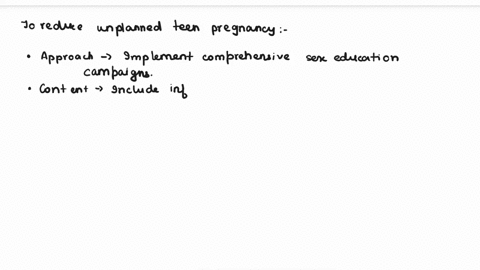 To reduce unplanned teen pregnancy:-
• Approach → Implement comprehensive sex education
campaigns.
• Content → Include inf